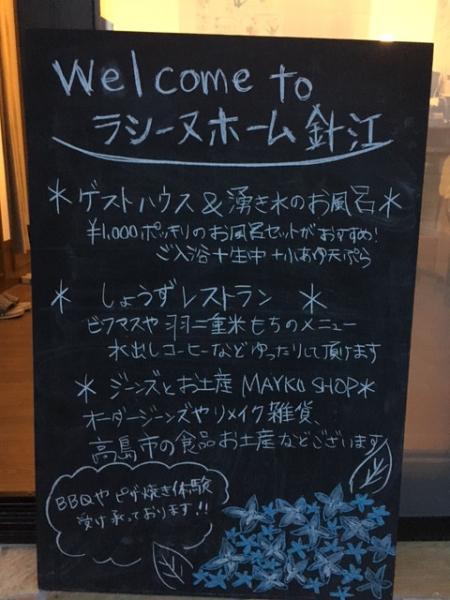 Welcome to
ラシーヌホーム 針江
＊ゲストハウス＆湧き水のお風呂＊
¥1,000ポッキリのお風呂セットがおすすめ!
ご入浴+生中+小あゆ天ぷら
＊ しょうずレストラン ＊
ビワマスや羽二重米もちのメニュー
水出しコーヒーなどゆったりして頂けます
＊ジーンズとお土産 MAYKA SHOP＊
オーダージーンズやリメイク雑貨、
高島市の食品お土産などございます
BBQや ピザ焼き体験
受け承っております!!